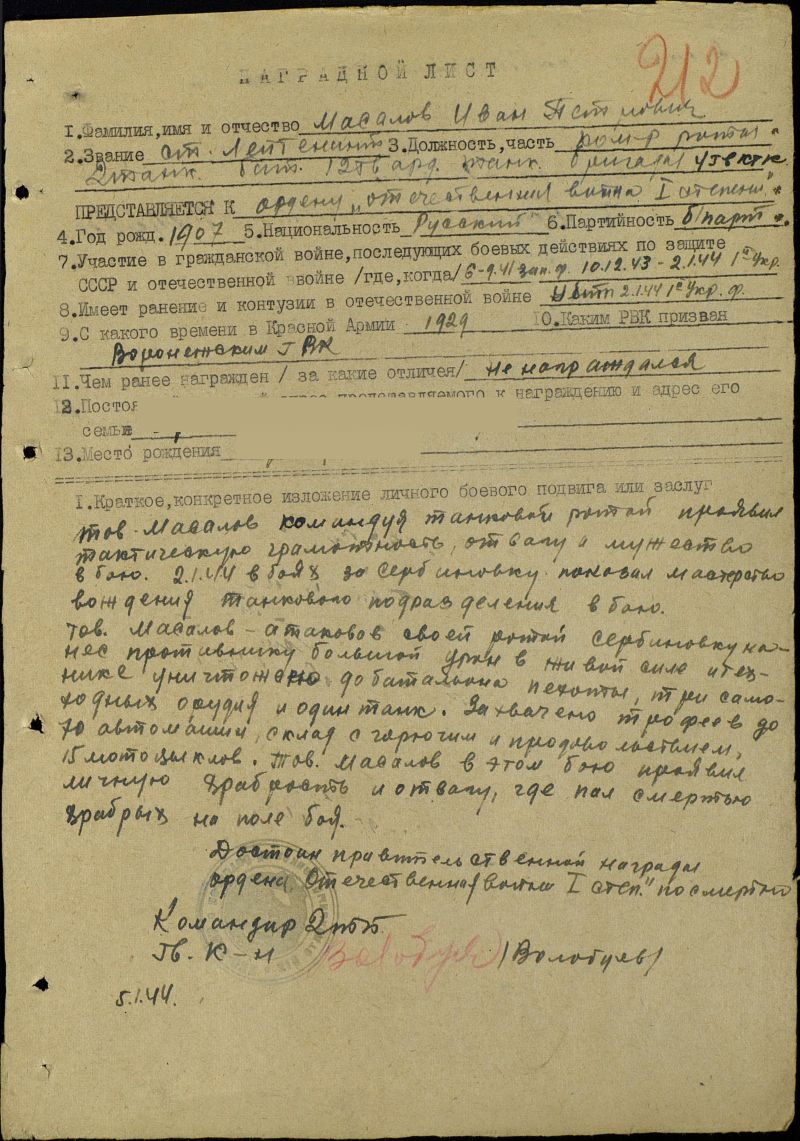 212
НАГРАДНОЙ ЛИСТ
1.Фамилия,имя и отчество Масалов Иван Петрович
2.Звание ст. Лейтенант 3.Должность,часть ком-р роты
2танк. бат. 12гвард. танк. бригады 4гвктк
ПРЕДСТАВЛЯЕТСЯ К ордену „отечественная война I степени"
4.Год рожд. 1907 5.Национальность Русский 6.Партийность б/парт
7.Участие в гражданской войне,последующих боевых действиях по защите
СССР и отечественной войне /где,когда/ 6-9.41 зап.ф. 10.12.43 - 2.1.44 1й Укр.
8.Имеет ранение и контузии в отечественной войне Убит 2.1.44 1й Укр. ф.
9.С какого времени в Красной Армии 1929 10.Каким РВК призван
Воронежским ГВК
11.Чем ранее награжден / за какие отличея/ не награждался
12.Постоя представляемого к награждению и адрес его
семьи
13.Место рождения
1.Краткое,конкретное изложение личного боевого подвига или заслуг
тов. Масалов командуя танковой ротой проявил
тактическую грамотность, отвагу и мужество
в бою. 2.1.44 в боях за Сербиновку показал мастерство
вождения танкового подразделения в бою.
Тов. Масалов - атаковав своей ротой Сербиновку на-
нес противнику большой урон в живой силе и тех-
нике уничтожено до батальона пехоты, три само-
ходных орудия и один танк. Захвачено трофеев до
70 автомашин, склад с горючим и продовольствием,
15 мотоцыклов. Тов. Масалов в этом бою проявил
личную храбрость и отвагу, где пал смертью
храбрых на поле боя.
Достоин правительственной награды
ордена „Отечественная война I степ." посмертно
Командир 2тб
Гв. К-н Волобуев /Волобуев/
5.1.44.